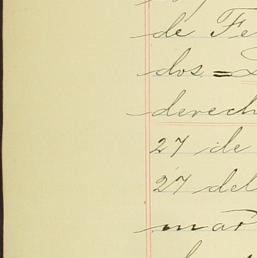 de Fe
dos =
derech
27 de
27 del
mar